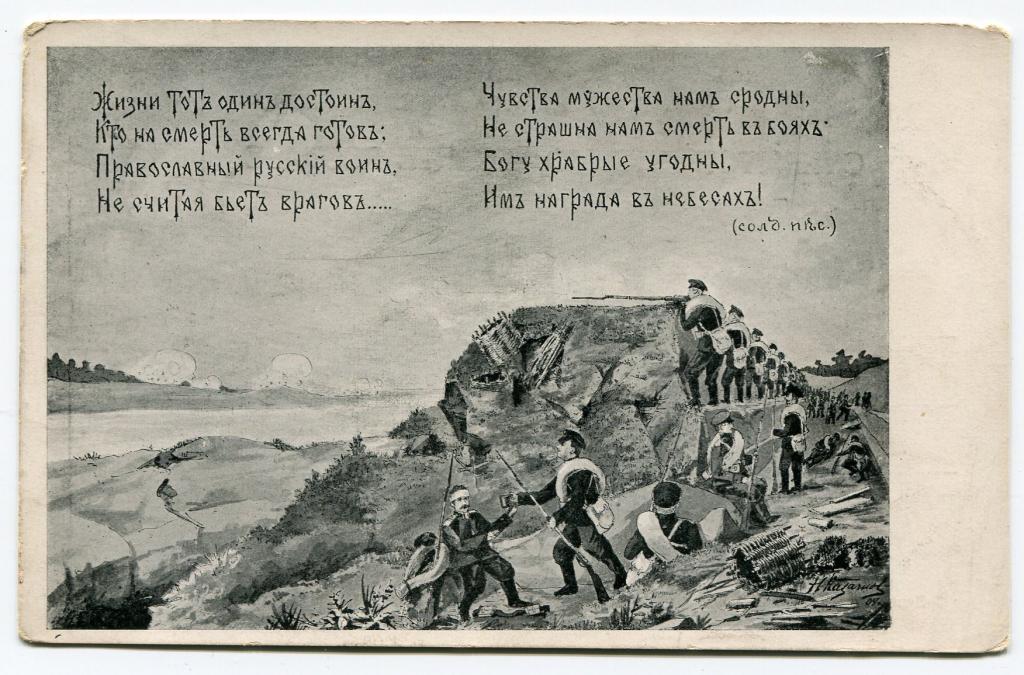 Жизни тотъ одинъ достоинъ,
Кто на смерть всегда готовъ;
Православный русскій воинъ,
Не считая бьетъ враговъ.....
Чувства мужества намъ сродны,
Не страшна намъ смерть въ бояхъ.
Богу храбрые угодны,
Имъ награда въ небесахъ!
(солд. пѣс.)